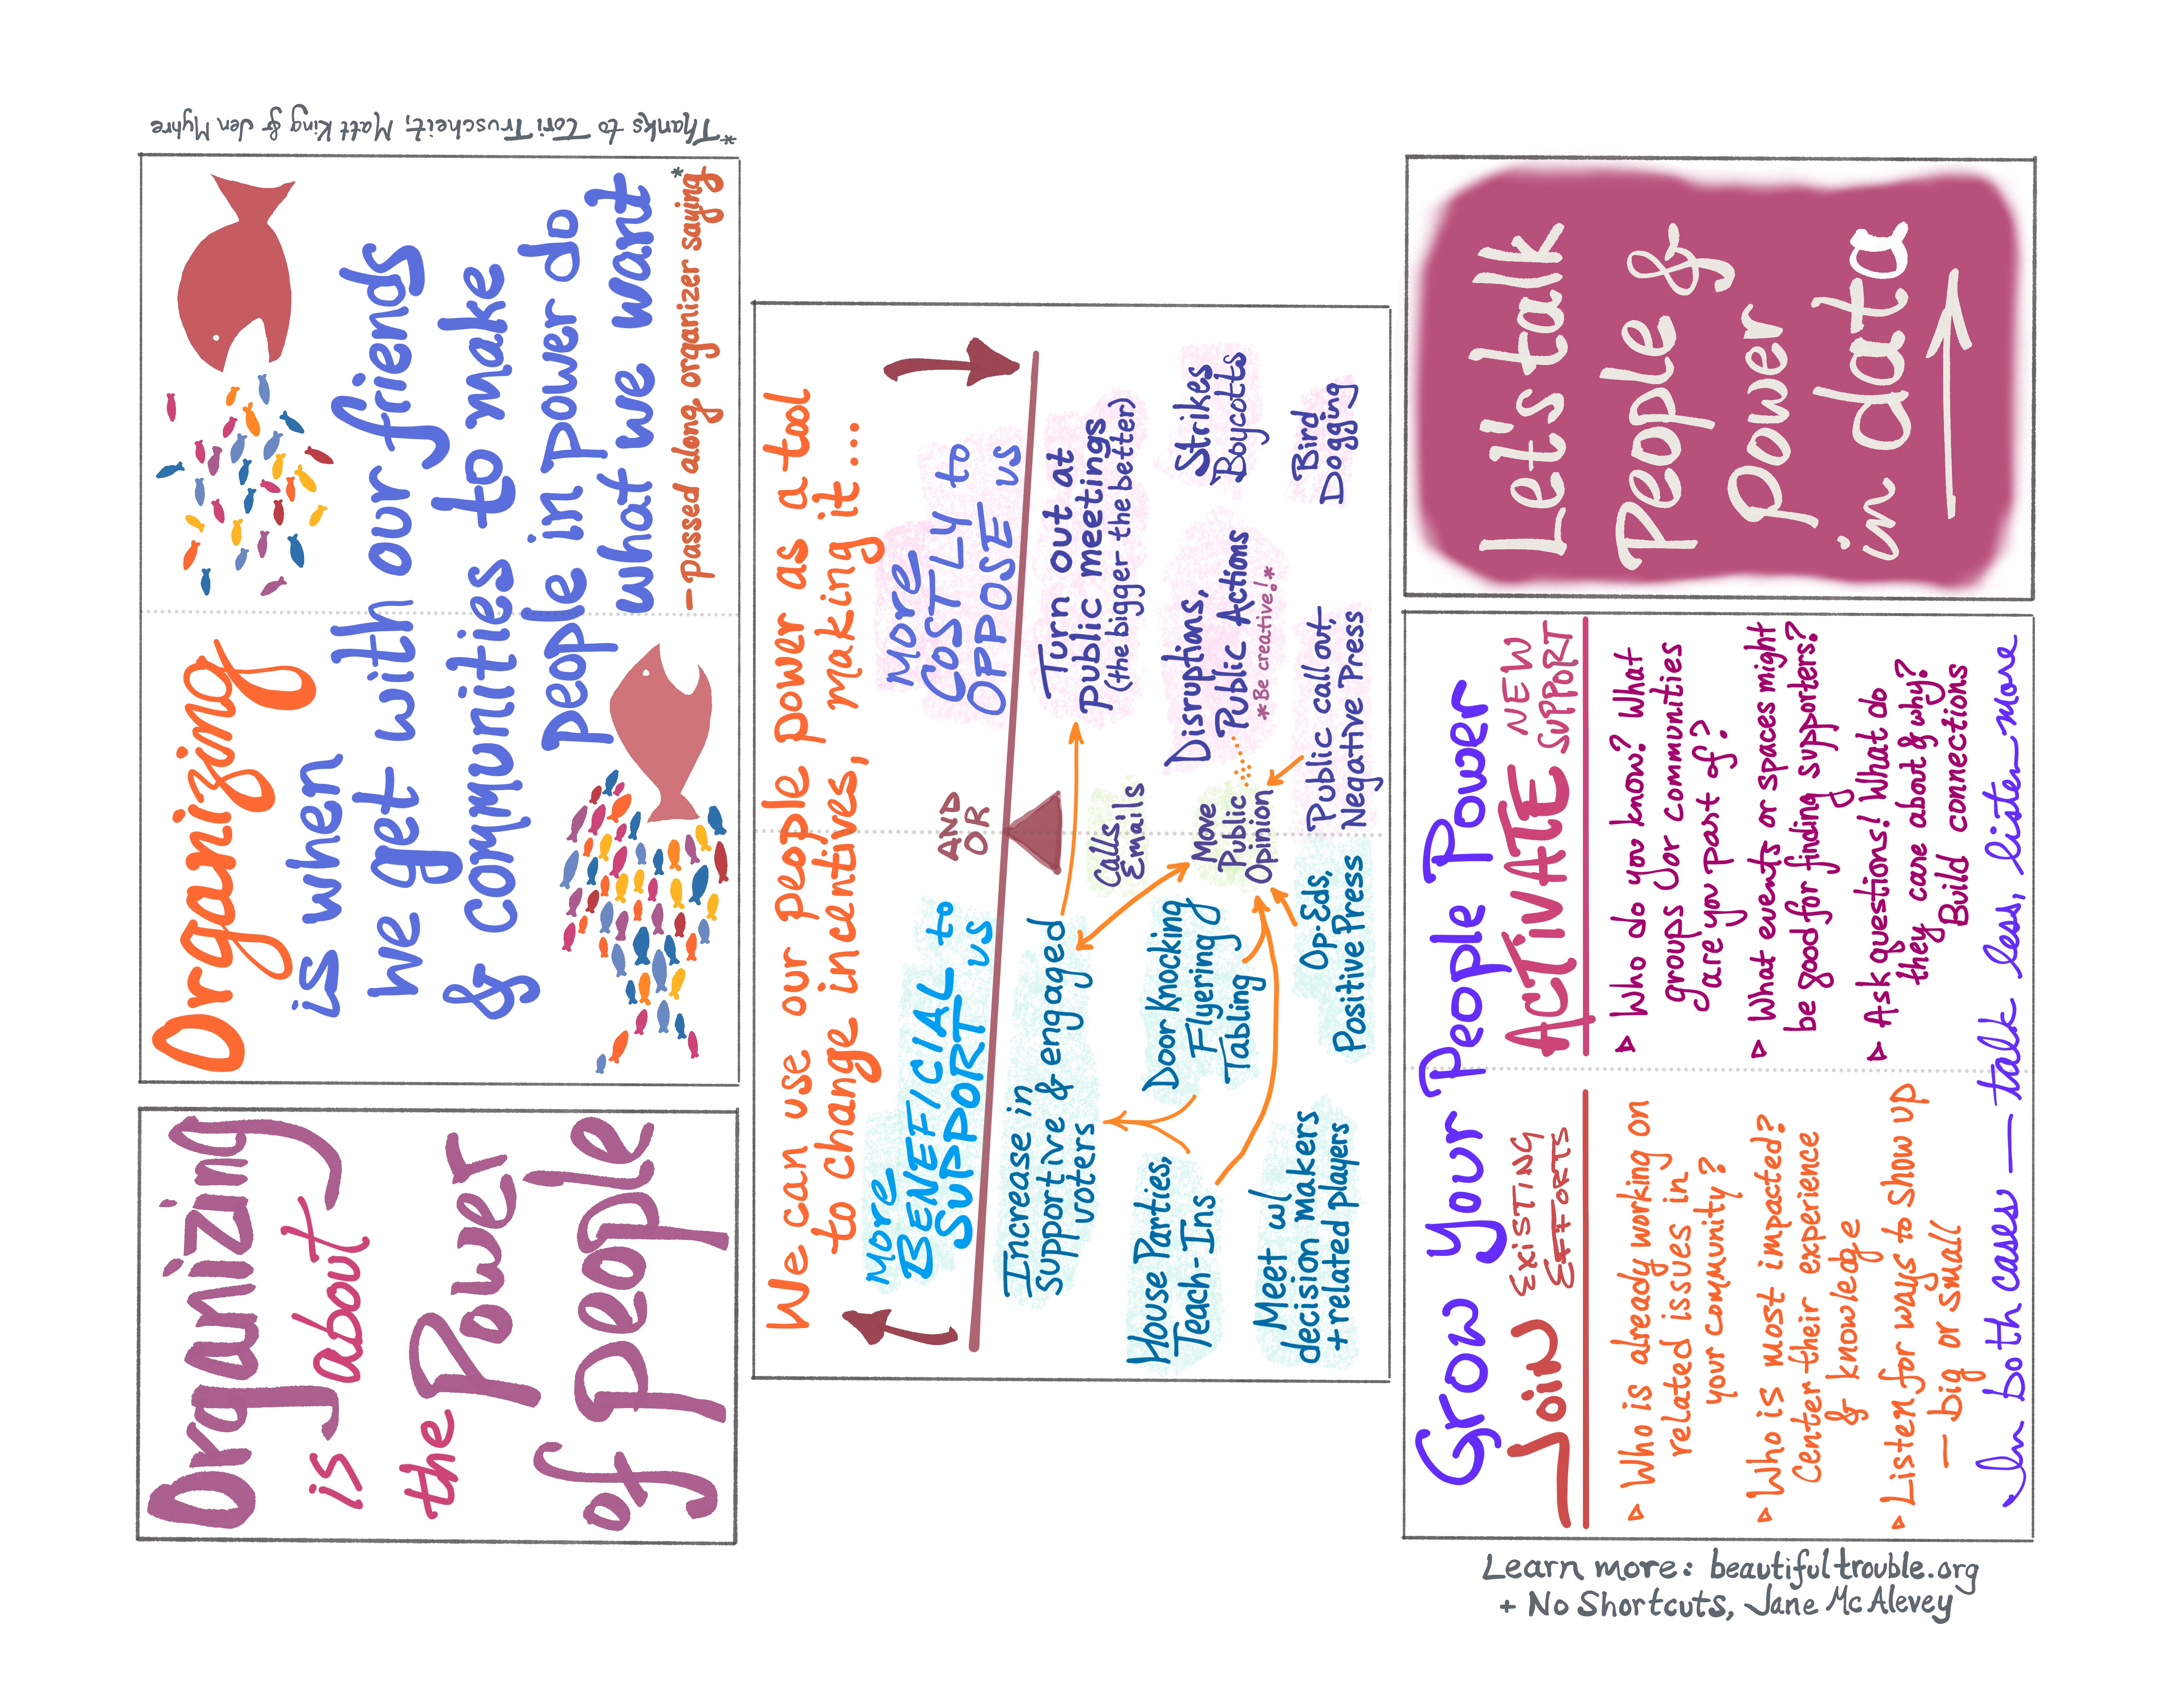 Organizing
is about
the Power
of people
Organizing
is when
we get with our friends
& communities to make
people in power do
what we want
- passed along organizer saying*
*Thanks to Tori Truscheit, Matt King & Jen Myhre
We can use our people power as a tool
to change incentives, making it...
More
BENEFICIAL to
SUPPORT us
AND
OR
More
COSTLY to
OPPOSE us
Increase in
supportive & engaged
voters
House Parties,
Teach-Ins
Door Knocking
Flyering
Tabling
Meet w/
decision makers
+ related players
Op-Eds,
Positive Press
Calls,
Emails
Move
Public
Opinion
Turn out at
public meetings
(the bigger the better)
Disruptions,
Public Actions
*Be creative!*
Strikes
Boycotts
Public call out,
Negative Press
Bird
Dogging
Grow Your People Power
Join EXISTING
EFFORTS
▹ Who is already working on
related issues in
your community?
▹ Who is most impacted?
Center their experience
& knowledge
▹ Listen for ways to show up
- big or small
ACTIVATE NEW
SUPPORT
▹ Who do you know? What
groups &/or communities
are you part of?
▹ What events or spaces might
be good for finding supporters?
▹ Ask questions! What do
they care about & why?
Build connections
In both cases - talk less, listen more
Let's talk
People &
Power
in data
Learn more: beautifultrouble.org
+ No Shortcuts, Jane McAlevey